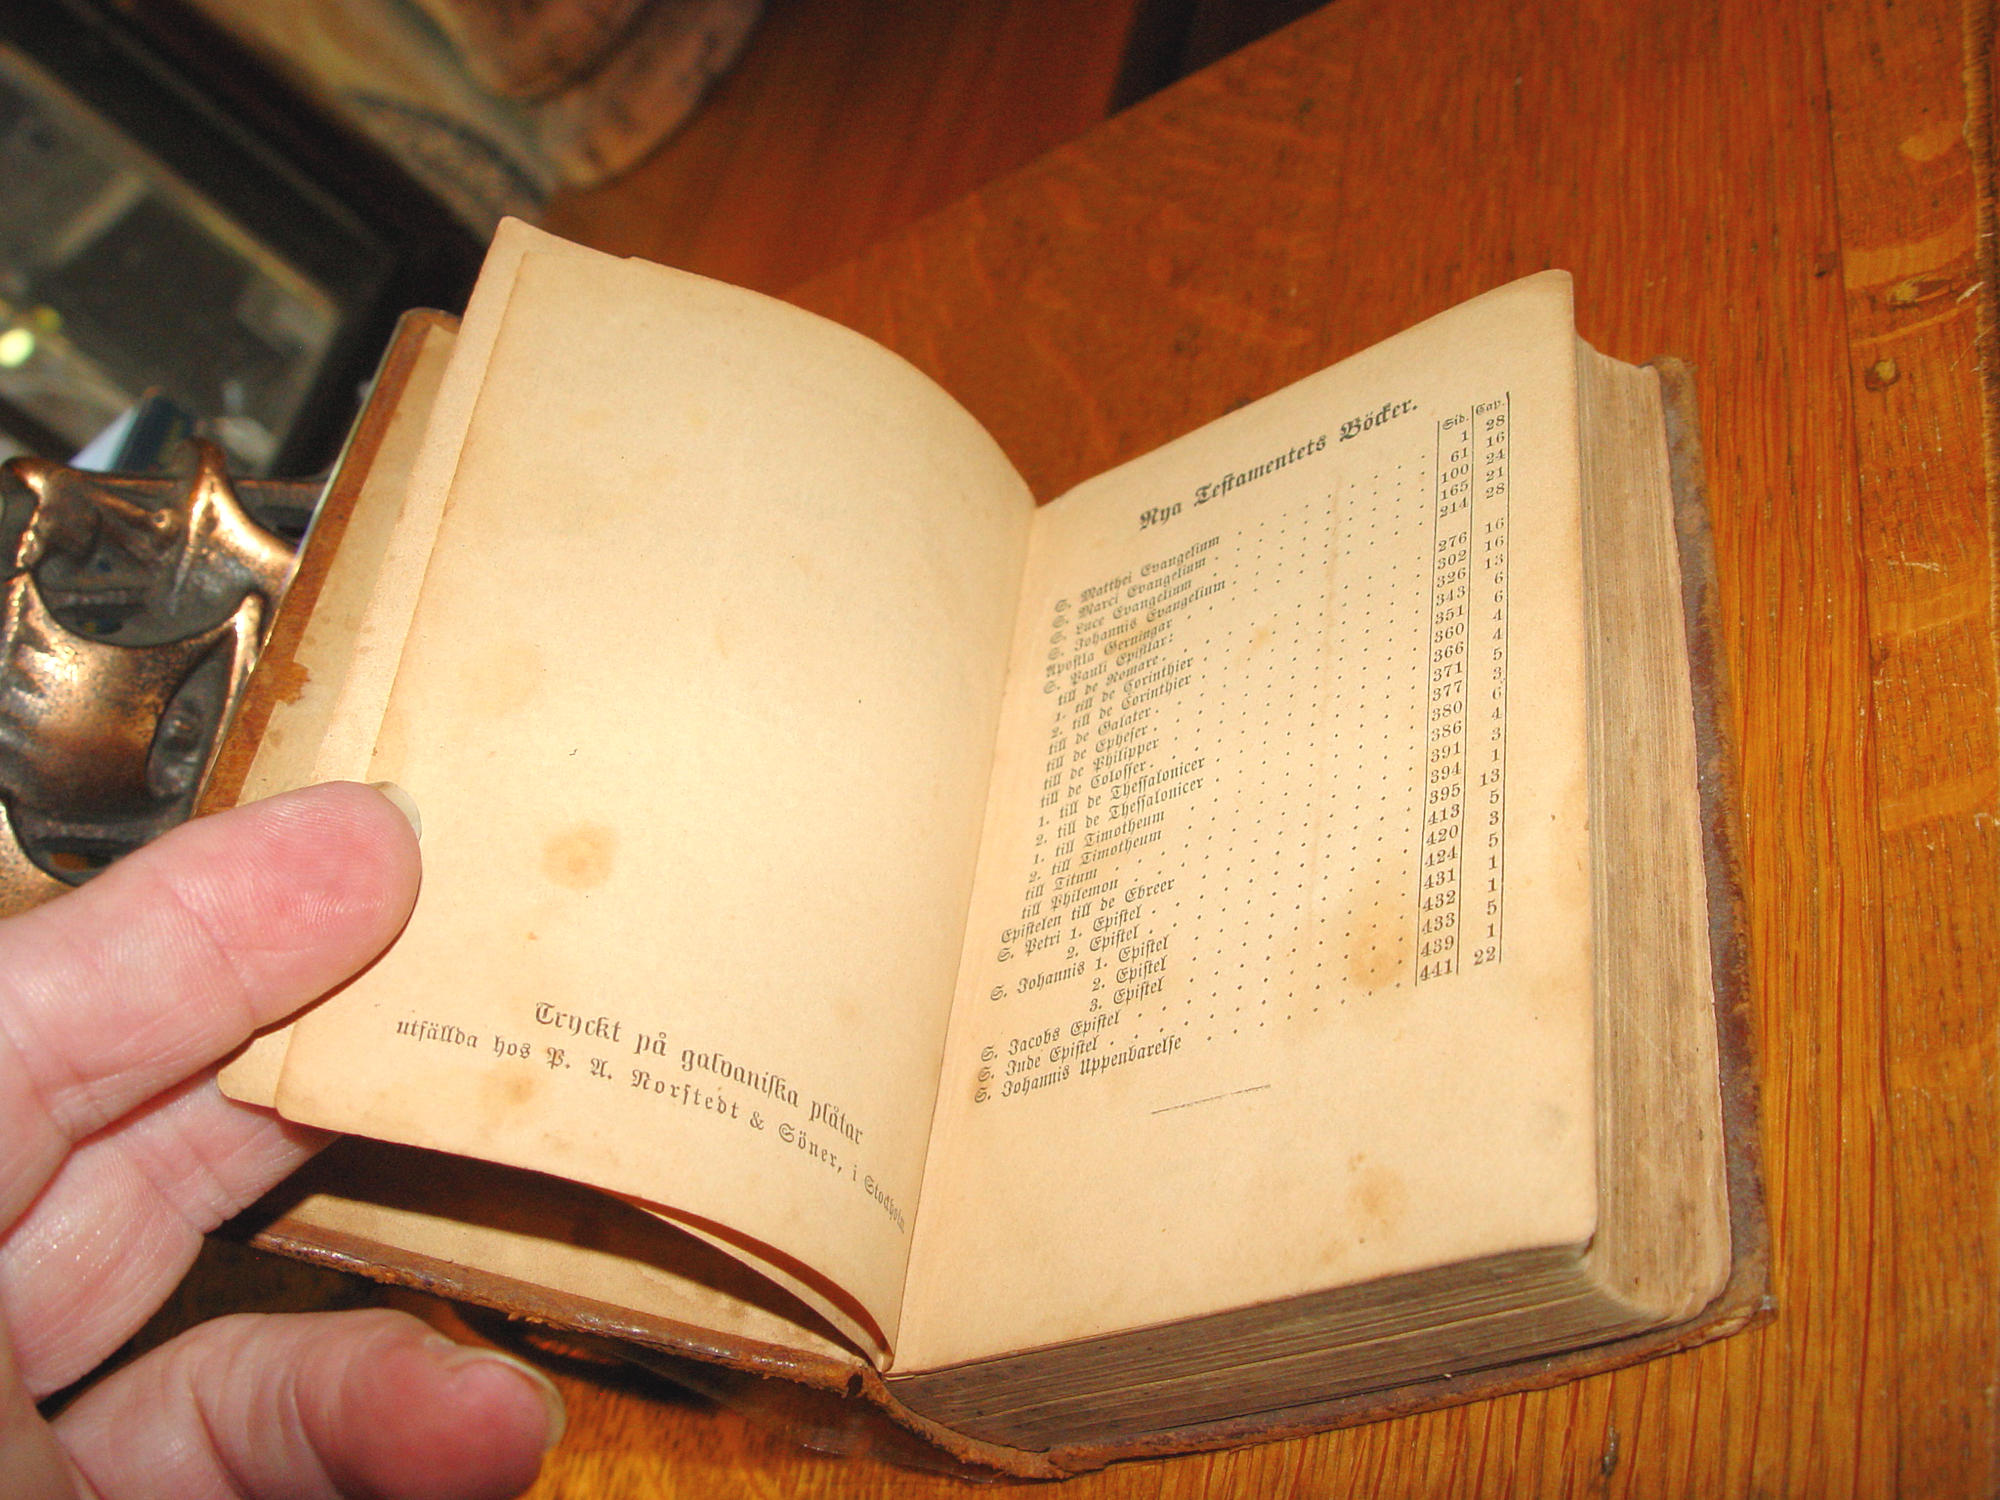 Tryckt på galvaniska plåtar
utfällda hos P. A. Norstedt & Söner, i Stockholm.
Nya Testamentets Böcker.
Sid. Cap.
S. Matthei Evangelium 1 28
S. Marci Evangelium 61 16
S. Luce Evangelium 100 24
S. Johannis Evangelium 165 21
Apostla Gerningar 214 28
S. Pauli Epistlar:
till de Romare 276 16
1. till de Corinthier 302 16
2. till de Corinthier 326 13
till de Galater 343 6
till de Epheser 351 6
till de Philipper 360 4
till de Colosser 366 4
1. till de Thessalonicer 371 5
2. till de Thessalonicer 377 3
1. till Timotheum 380 6
2. till Timotheum 386 4
till Titum 391 3
till Philemon 394 1
Epistelen till de Ebreer 395 13
S. Petri 1. Epistel 413 5
2. Epistel 420 3
S. Johannis 1. Epistel 424 5
2. Epistel 431 1
3. Epistel 432 1
S. Jacobs Epistel 433 5
S. Jude Epistel 439 1
S. Johannis Uppenbarelse 441 22